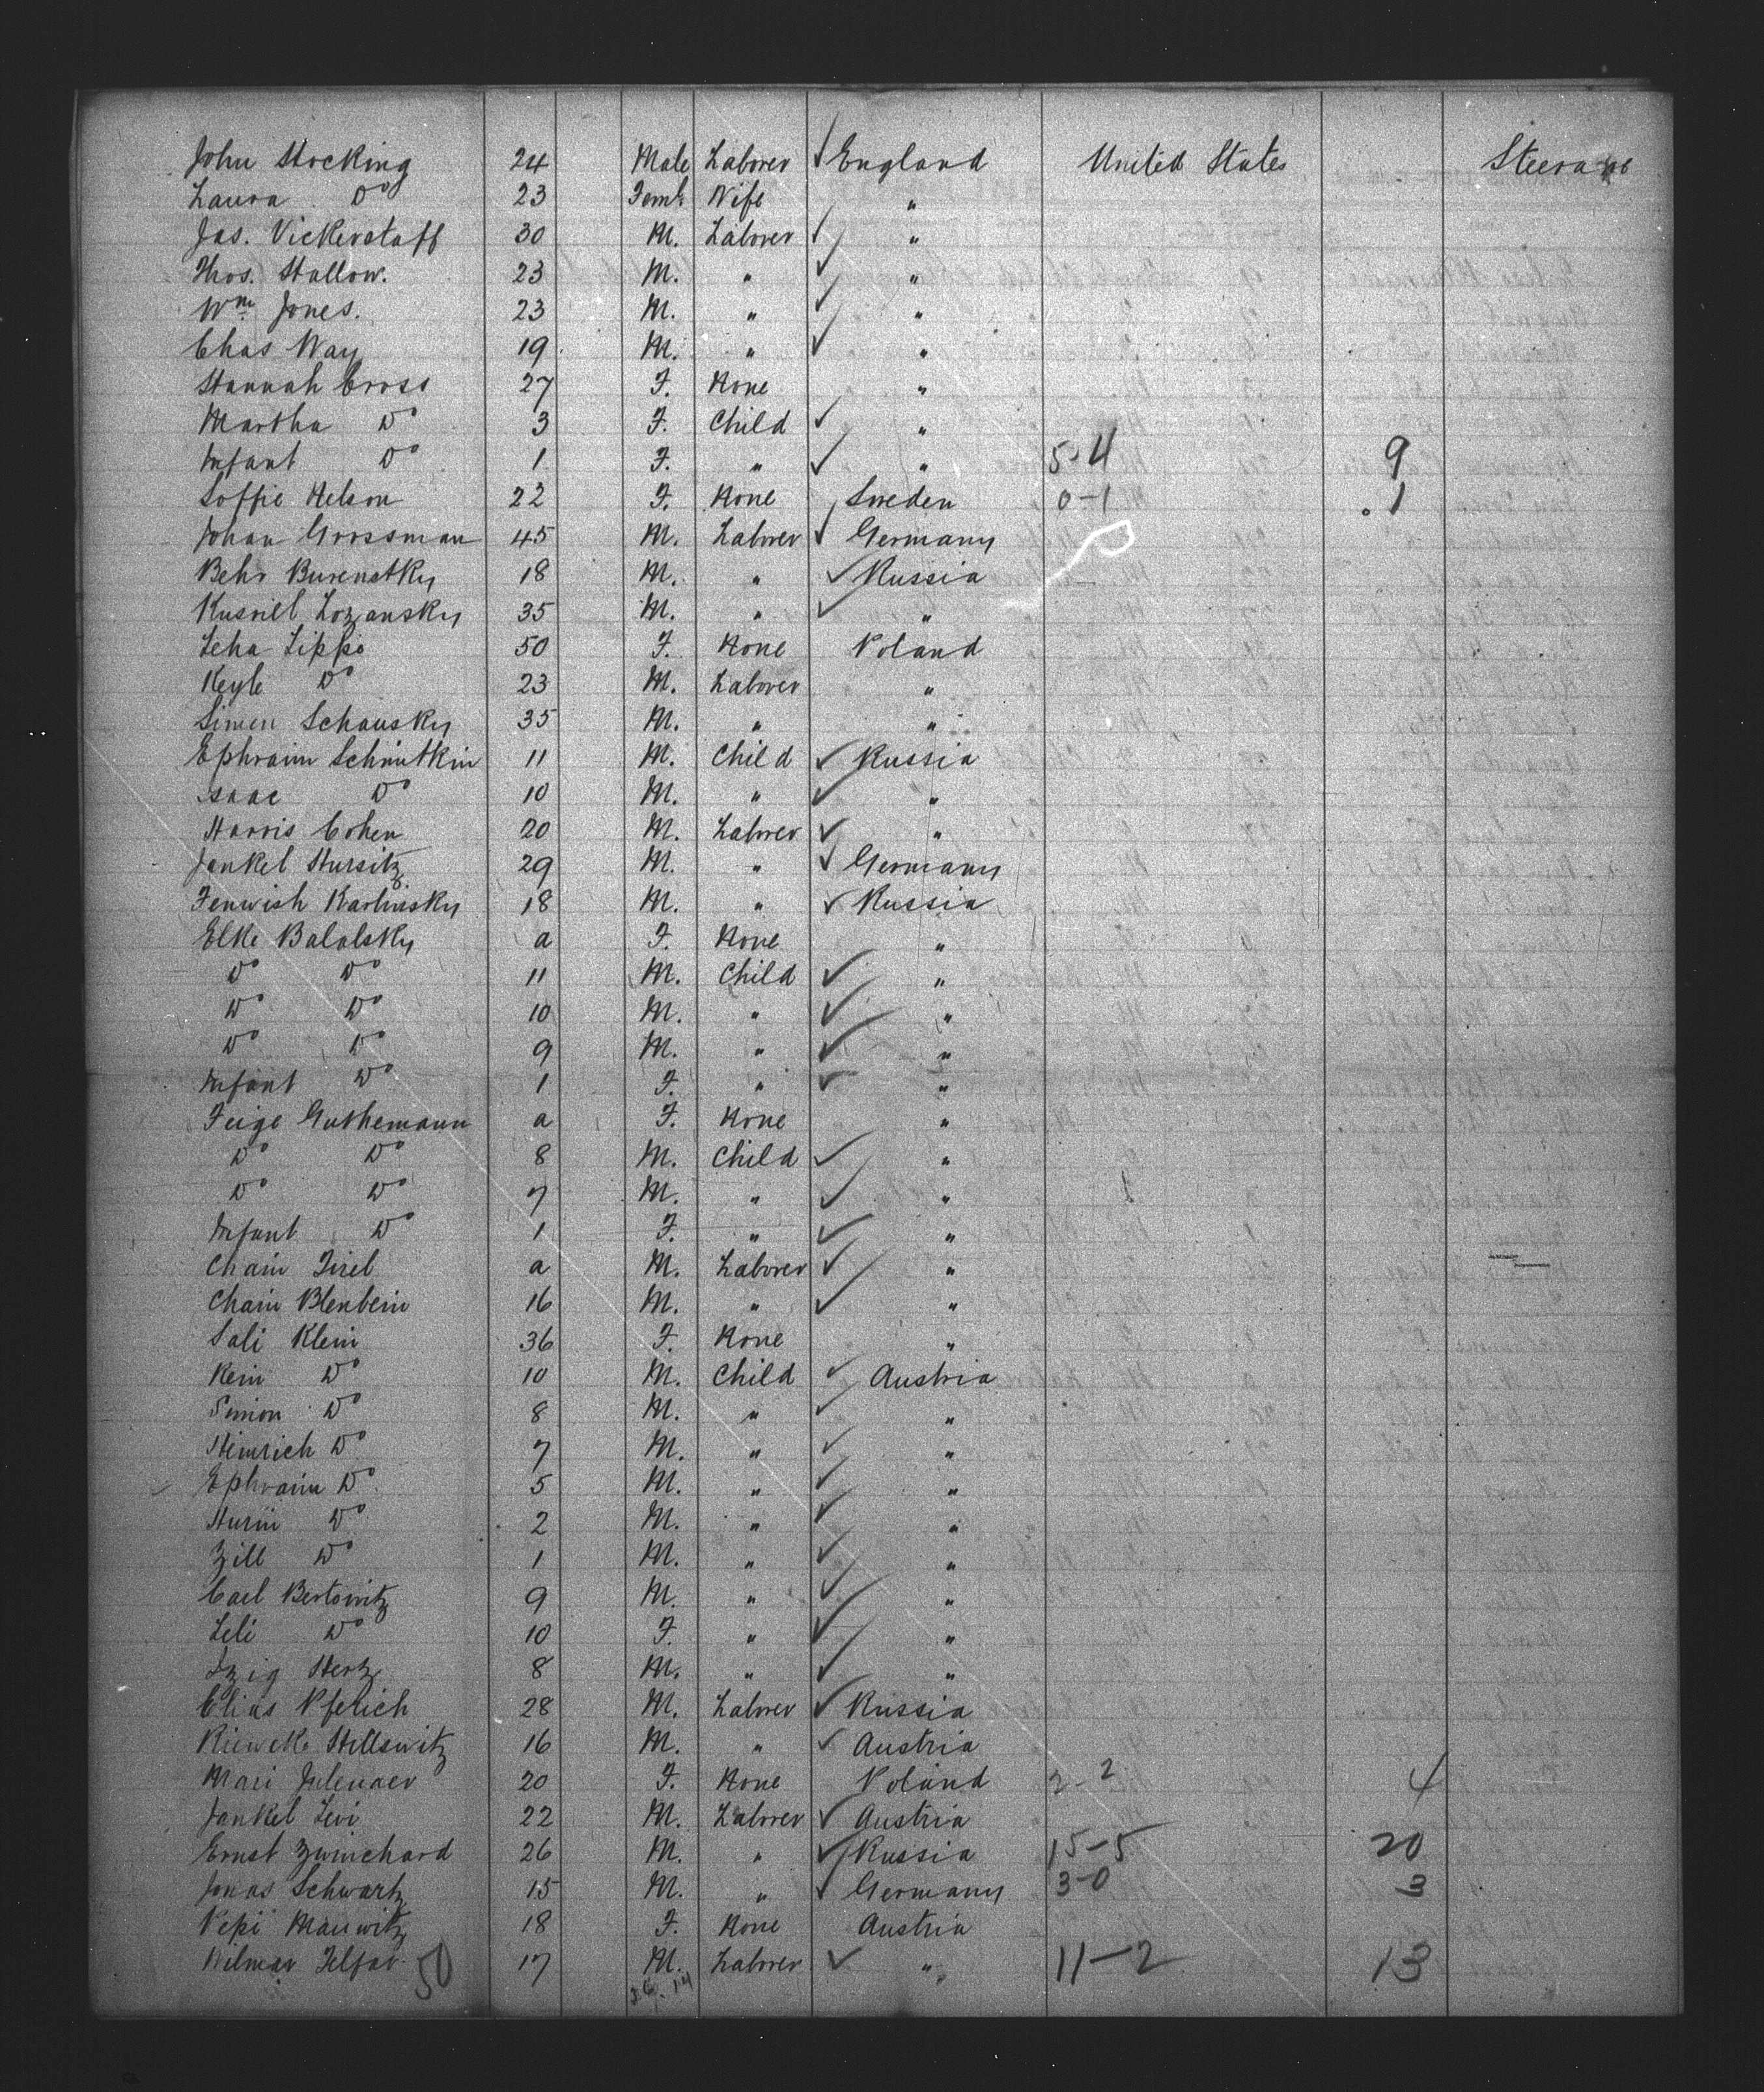 John Hocking 24 Male Laborer ✓ England United States Steerage
Laura Do 23 Feml. Wife "
Jas. Vickerstaff 30 M. Laborer ✓ "
Thos. Hallow. 23 M. " ✓ "
Wm. Jones. 23 M. " ✓ "
Chas Way 19 M. " ✓ "
Hannah Cross 27 F. None "
Martha Do 3 F. Child ✓ "
Infant Do 1 F. " ✓ " 5-4 9
Soffie Nelson 22 F. None Sweden 0-1 1
Johan Grossman 45 M. Laborer ✓ Germany
Behr Burenstky 18 M. " ✓ Russia
Kusriel Lozansky 35 M. " ✓ "
Leha Lippe 50 F. None Poland
Keyle Do 23 M. Laborer "
Simen Schausky 35 M. " "
Ephraim Schmitkin 11 M. Child ✓ Russia
Isaac Do 10 M. " ✓ "
Harris Cohen 20 M. Laborer ✓ "
Jankel Hursitz 29 M. " ✓ Germany
Fenwish Karlinsky 18 M. " ✓ Russia
Elke Balalsky a F. None "
Do Do 11 M. Child ✓ "
Do Do 10 M. " ✓ "
Do Do 9 M. " ✓ "
Infant Do 1 F. " ✓ "
Feige Guthemann a F. None "
Do Do 8 M. Child ✓ "
Do Do 7 M. " ✓ "
Infant Do 1 F. " ✓ "
Chaim a M. Laborer ✓ "
Chaim Blenbein 16 M. " ✓ "
Sali Klein 36 F. None "
Rein Do 10 M. Child ✓ Austria
Simon Do 8 M. " ✓ "
Heinrich Do 7 M. " ✓ "
Ephraim Do 5 M. " ✓ "
Do 2 M. " ✓ "
Zill Do 1 M. " ✓ "
Cael Bertowitz 9 M. " ✓ "
Leli Do 10 F. " ✓ "
Izig Hertz 8 M. " ✓ "
Elias Pferich 28 M. Laborer ✓ Russia
Hellswitz 16 M. " ✓ Austria
Mari 20 F. None Poland 2-2 4
Jankel Levi 22 M. Laborer ✓ Austria
Ernst Zwinchard 26 M. " ✓ Russia 15-5 20
Jonas Schwartz 15 M. " ✓ Germany 3-0 3
Pepi Mauwitz 18 F. None Austria
Wilmar Telfar 50 17 M. Laborer ✓ " 11-2 13